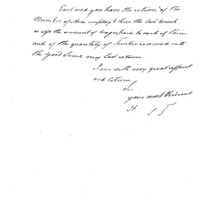 Enclosed you have the return of the
Number of Men employ'd here the last week
as also the amount of wages paid to each of them
and of the quantity of Timber received into
the Yard since my last return.
I am with very great respect
and Esteem
Sir
your most Obedient